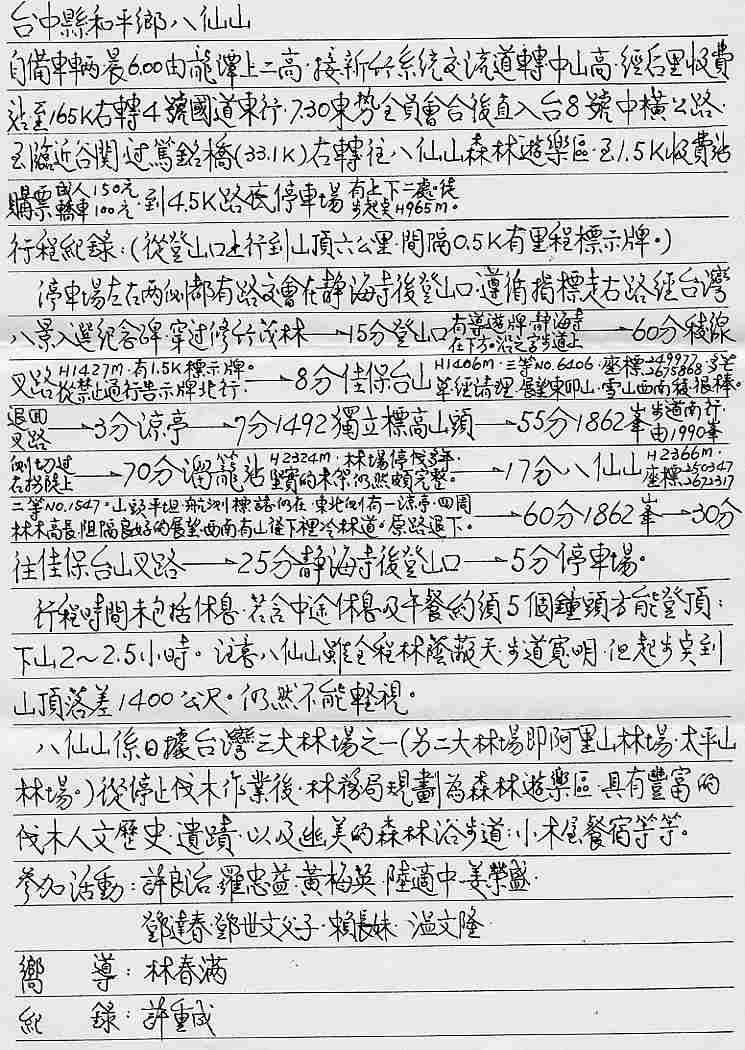 台中縣和平鄉八仙山
自備車輛晨6.00由龍潭上二高·接新竹系統交流道轉中山高·經后里收費
站至165K右轉4號國道東行·7.30東勢全員會合後直入台8號中橫公路·
至臨近谷關·過篤銘橋(33.1K)右轉往八仙山森林遊樂區·至1.5K收費站
購票國人150元·轎車100元·到4.5K路底停車場有上下二處·徒步起点H965m。
行程紀錄:(從登山口上行到山頂六公里·間隔0.5K有里程標示牌。)
停車場左右兩側都有路交會在静海寺後登山口·遵循指標走右路經台灣
八景入選紀念碑·穿过修竹茂林→15分登山口有導遊牌·静海寺在下方。沿之字步道上→60分稜線
叉路H1427m·有1.5K標示牌。從禁止通行告示牌北行·→8分佳保台山H1406m·三等NO.6406·座標249977 2675868多芒草經清理·展望東卯山·雪山西南後·很棒。
退回叉路→3分涼亭→7分1492獨立標高山頭→55分1862峯步道南行·由1990峯
側切过右拐陡上→70分溜籠站H2324m·林場停伐多年·堅實的木架仍然頗完整。→17分八仙山H2366m·座標250347 2672317
二等NO.1547·山頭平坦·航測標誌仍在·東北側有一涼亭·四周林木高長阻隔良好的展望·西南有山徑下裡冷林道。原路退下。→60分1862峯→30分
往佳保台山叉路→25分静海寺後登山口→5分停車場。
行程時間未包括休息·若含中途休息及午餐約須5個鐘頭方能登頂;
下山2~2.5小時。注意八仙山雖全程林蔭蔽天·步道寬明·但起步点到
山頂落差1400公尺。仍然不能輕視。
八仙山係日據台灣三大林場之一(另二大林場即阿里山林場·太平山
林場。)從停止伐木作業後·林務局規劃為森林遊樂區·具有豐富的
伐木人文歷史·遺蹟·以及幽美的森林浴步道;小木屋餐宿等等。
參加活動:許良治 羅忠益·黃梅英·陸適中·姜榮盛·
鄧達春·鄧世文父子·賴長妹·溫文隆
嚮 導:林春滿
紀 錄:許重成